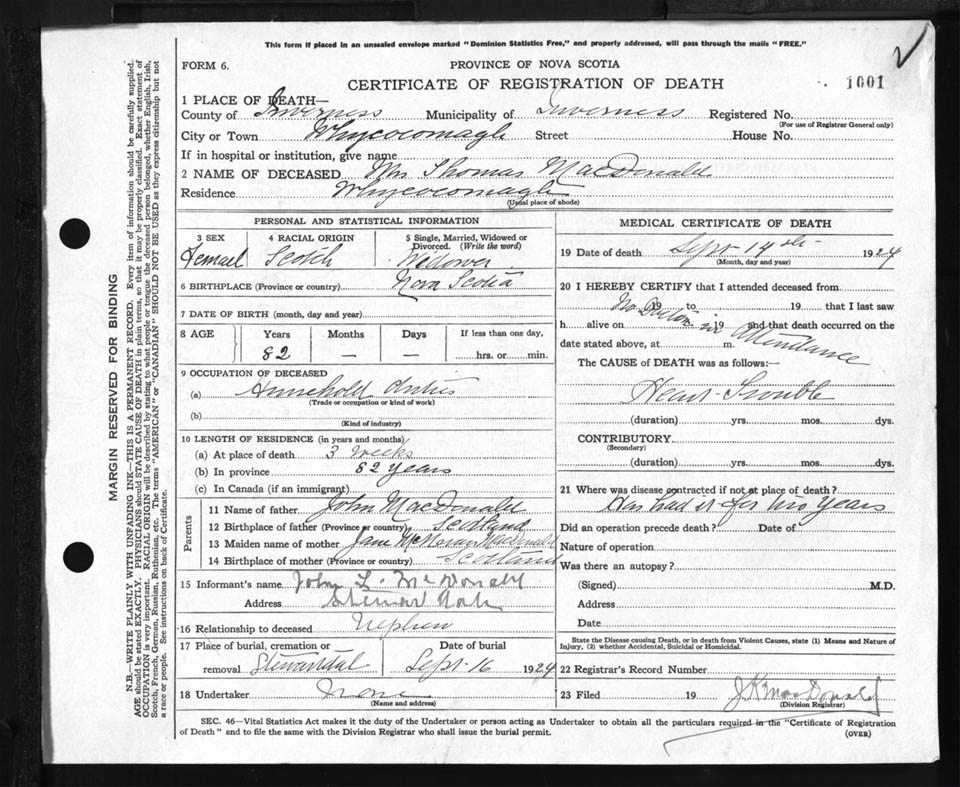 This form if placed in an unsealed envelope marked "Dominion Statistics Free," and properly addressed, will pass through the mails "FREE."
FORM 6.
PROVINCE OF NOVA SCOTIA
CERTIFICATE OF REGISTRATION OF DEATH
1001
1 PLACE OF DEATH—
County of Inverness Municipality of Inverness Registered No.
(For use of Registrar General only)
City or Town Whycocomagh Street House No.
If in hospital or institution, give name
2 NAME OF DECEASED Mrs Thomas MacDonald
Residence Whycocomagh
(Usual place of abode)
PERSONAL AND STATISTICAL INFORMATION
3 SEX 4 RACIAL ORIGIN 5 Single, Married, Widowed or Divorced. (Write the word)
Femail Scotch Widower
6 BIRTHPLACE (Province or country) Nova Scotia
7 DATE OF BIRTH (month, day and year)
8 AGE Years Months Days If less than one day,
82 — — hrs. or min.
9 OCCUPATION OF DECEASED
(a) Household duties
(Trade or occupation or kind of work)
(b)
(Kind of industry)
10 LENGTH OF RESIDENCE (in years and months)
(a) At place of death 3 Weeks
(b) In province 82 years
(c) In Canada (if an immigrant)
Parents
11 Name of father John MacDonald
12 Birthplace of father (Province or country) Scotland
13 Maiden name of mother Jane MacDonald
14 Birthplace of mother (Province or country) Scotland
15 Informant's name John L. McDonald
Address
16 Relationship to deceased Nephew
17 Place of burial, cremation or removal Date of burial
Sept. 16 1924
18 Undertaker None
(Name and address)
MEDICAL CERTIFICATE OF DEATH
19 Date of death Sept 14th 1924
(Month, day and year)
20 I HEREBY CERTIFY that I attended deceased from
19 to 19 that I last saw
h alive on 19 and that death occurred on the
date stated above, at m.
No Doctor in Attendance
The CAUSE of DEATH was as follows:—
Heart Trouble
(duration) yrs. mos. dys.
CONTRIBUTORY
(Secondary)
(duration) yrs. mos. dys.
21 Where was disease contracted if not at place of death?
had it for two years
Did an operation precede death? Date of
Nature of operation
Was there an autopsy?
(Signed) M.D.
Address
Date
State the Disease causing Death, or in death from Violent Causes, state (1) Means and Nature of Injury, (2) whether Accidental, Suicidal or Homicidal.
22 Registrar's Record Number
23 Filed 19 J K MacDonald
(Division Registrar)
SEC. 46—Vital Statistics Act makes it the duty of the Undertaker or person acting as Undertaker to obtain all the particulars required in the "Certificate of Registration
of Death" and to file the same with the Division Registrar who shall issue the burial permit.
(OVER)
MARGIN RESERVED FOR BINDING
N.B.—WRITE PLAINLY WITH UNFADING INK—THIS IS A PERMANENT RECORD. Every item of information should be carefully supplied.
AGE should be stated EXACTLY. PHYSICIANS should STATE CAUSE OF DEATH in plain terms, so that it may be properly classified. Exact statement of
OCCUPATION is very important. RACIAL ORIGIN will be described by stating to what people or tongue the deceased person belonged, whether English, Irish,
Scotch, French, German, Russian, Ruthenian, etc. The terms "AMERICAN" or "CANADIAN" SHOULD NOT BE USED as they express citizenship but not
a race or people. See instructions on back of Certificate.